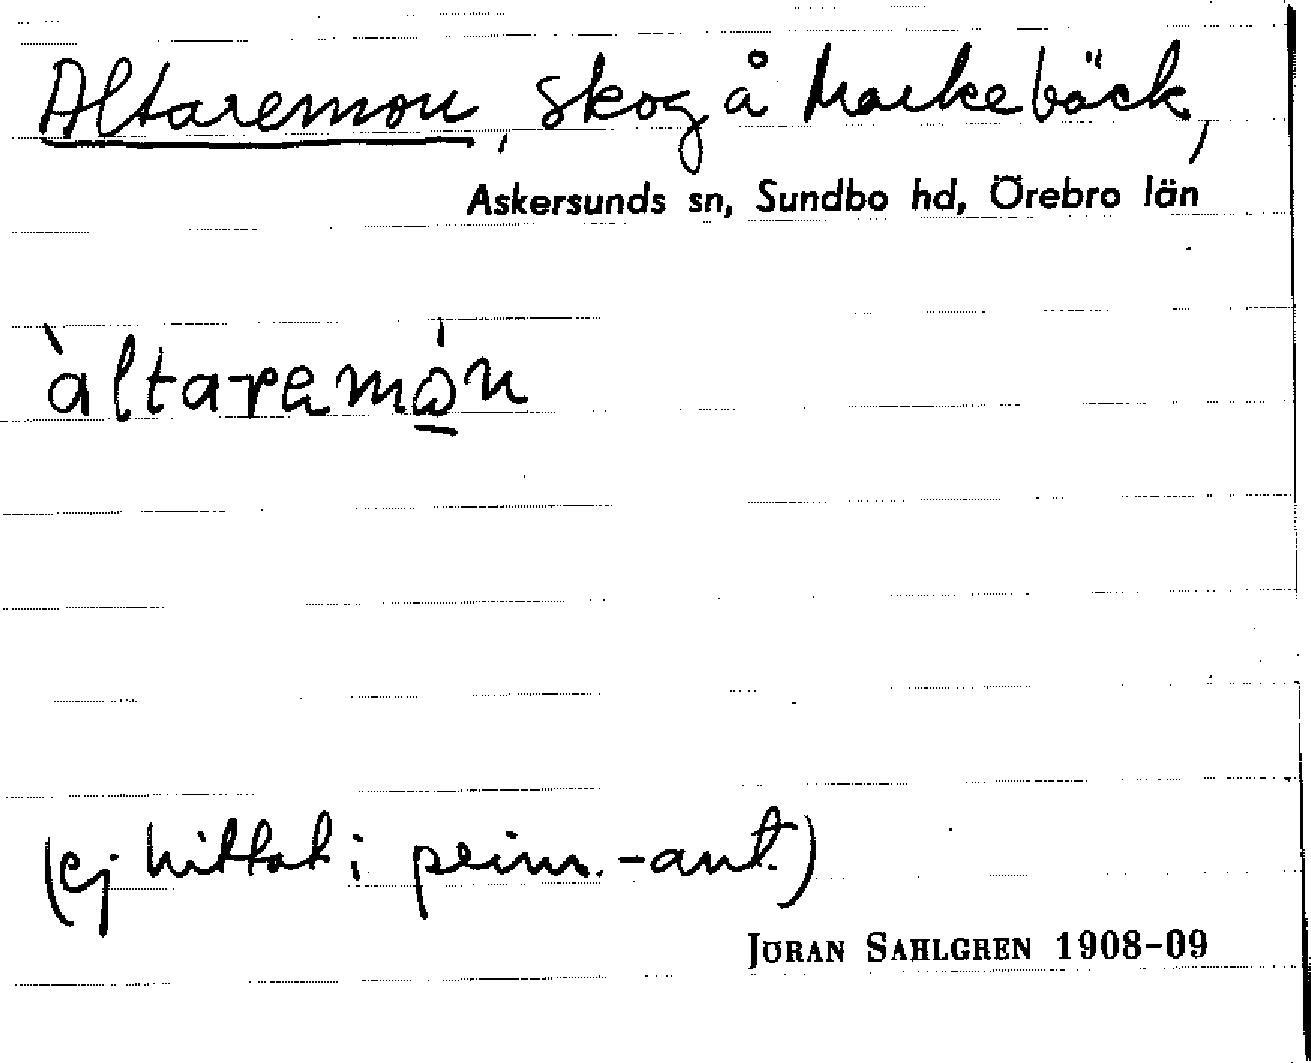 Altaremon, skog å Markebäck,
Askersunds sn, Sundbo hd, Örebro län
àltaremo̲̍n
(ej hittat i prim.-ant.)
JÖRAN SAHLGREN 1908-09